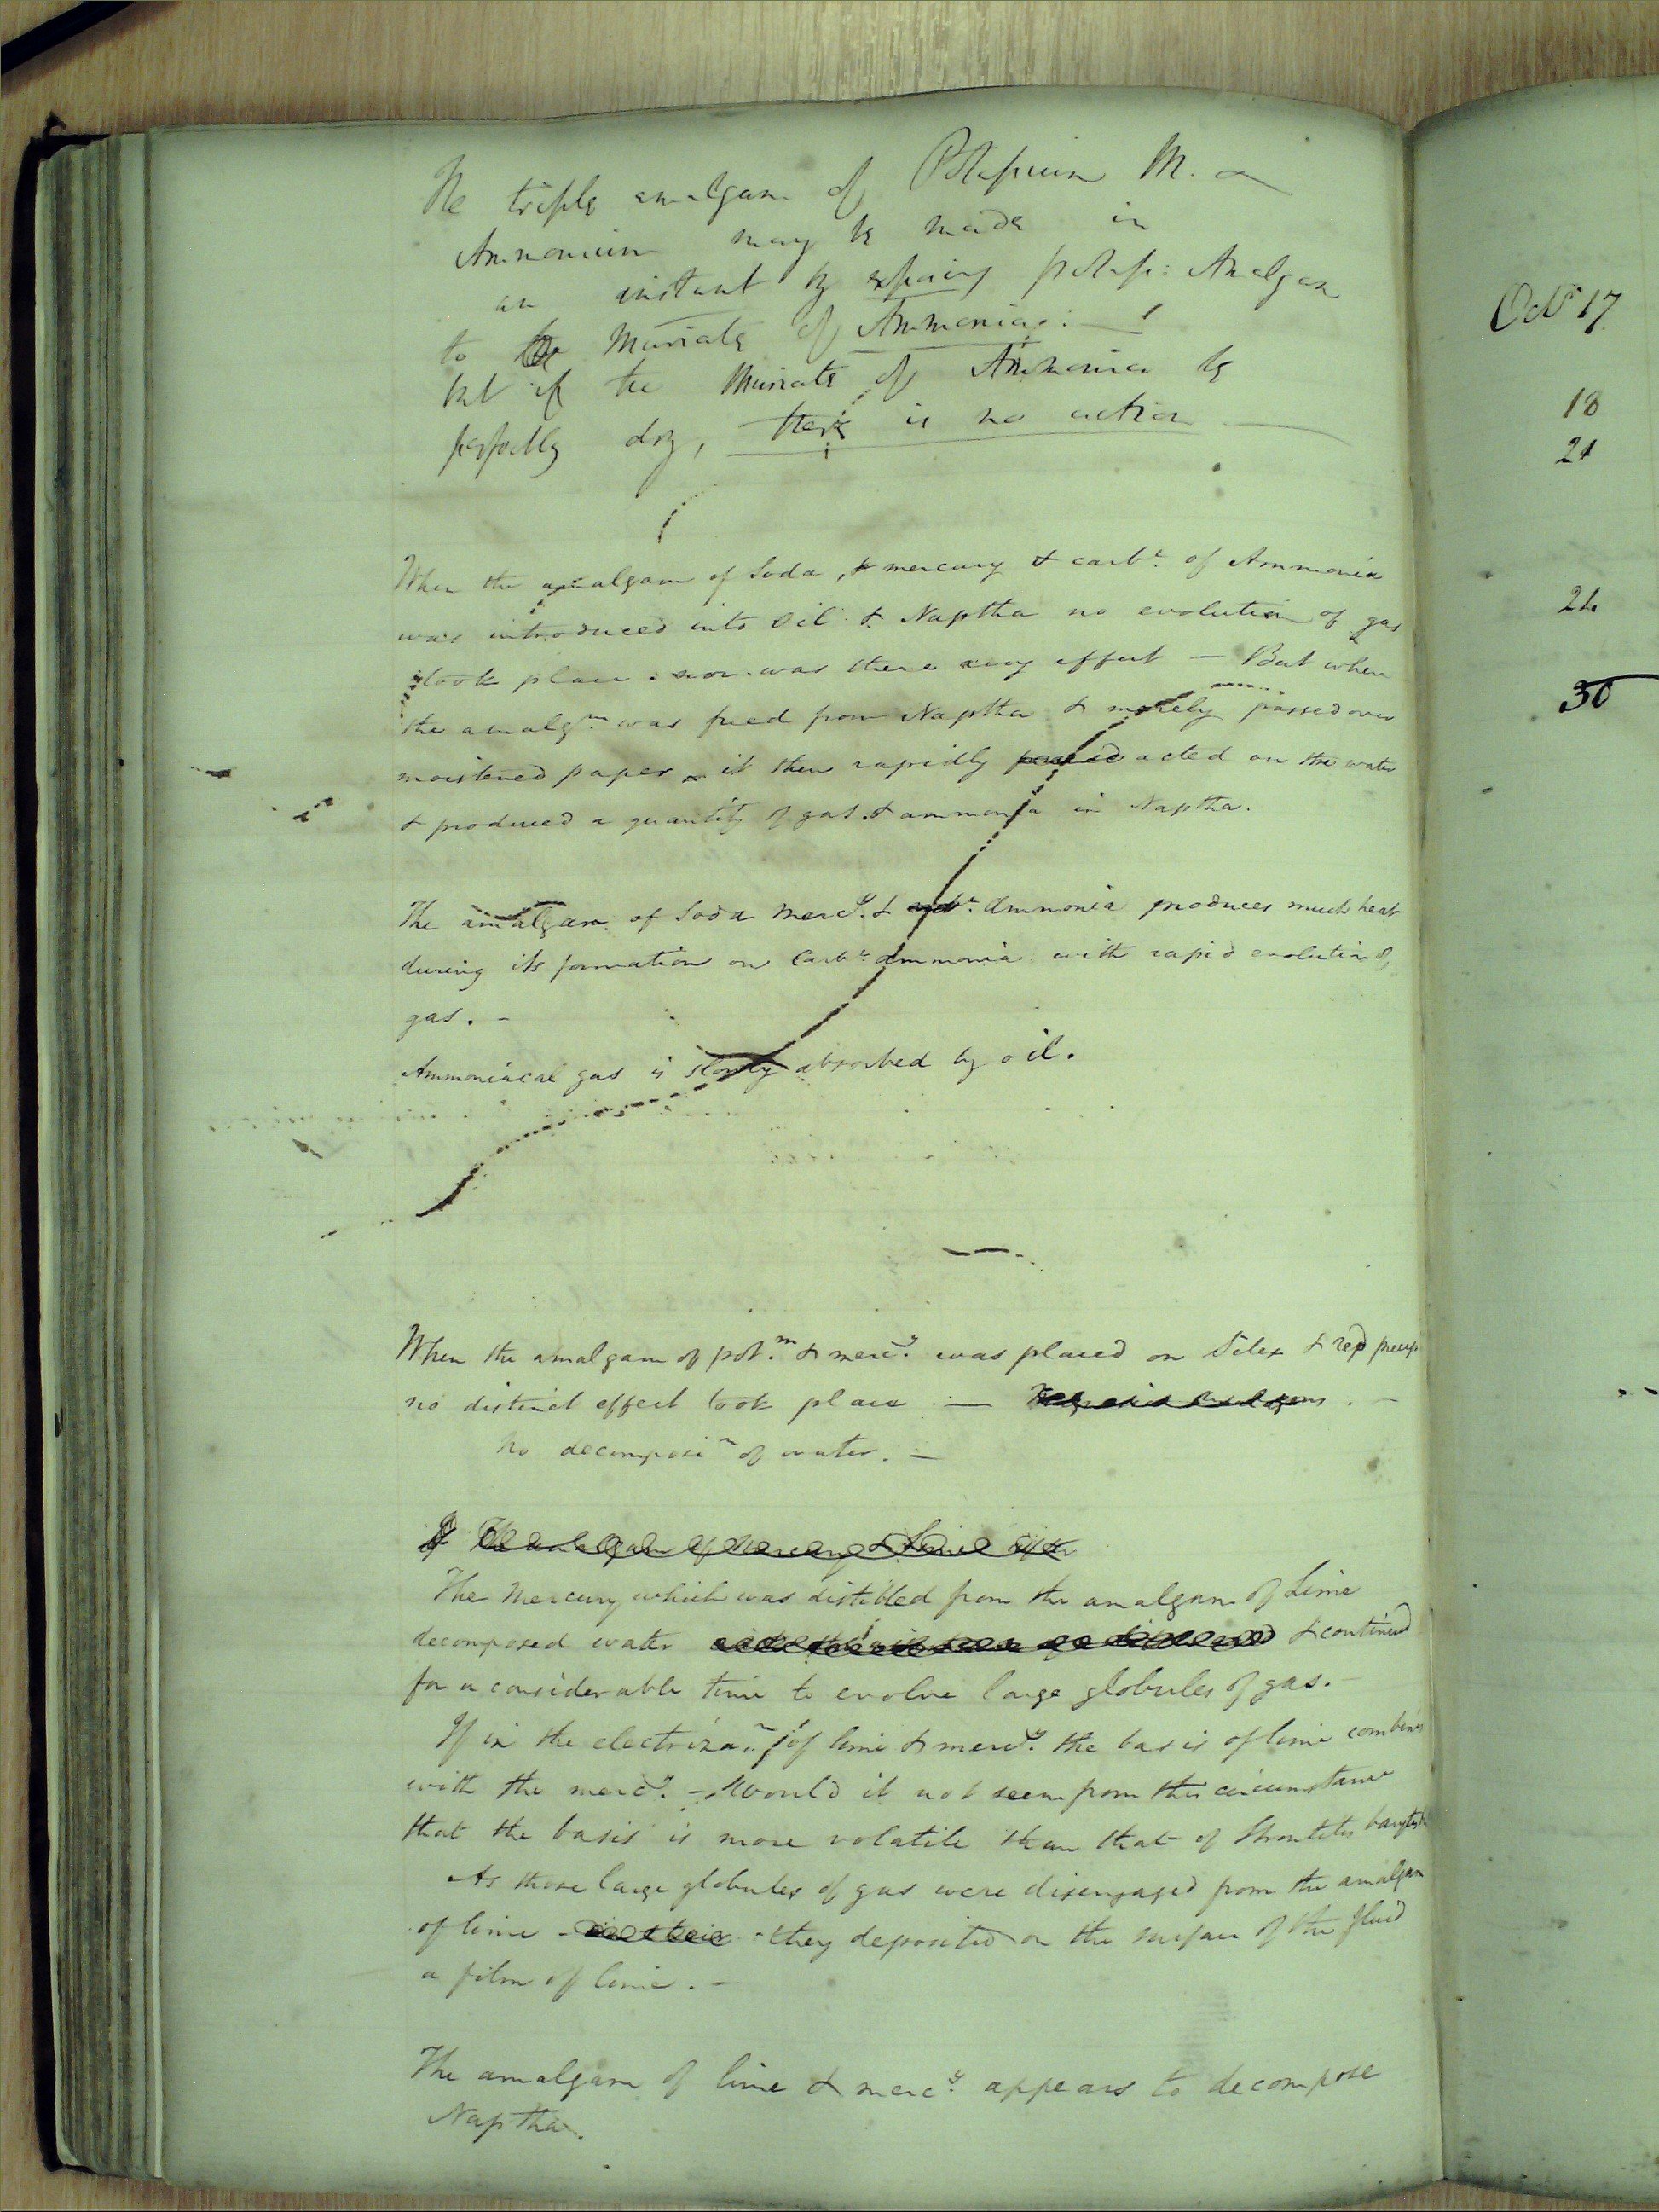 The triple amalgam of Potassium M. &
Ammonium may be made in
an instant by exposing potass: Amalgam
to the Muriate of Ammonia. —
but if the Muriate of Ammonia be
perfectly dry, there is no action
When the amalgam of Soda, & mercury & carbᵗ. of Ammonia
was introduced into oil & Naptha no evolution of gas
took place. nor was there any effect — But when
the amalgᵐ was freed from Naptha & merely passed over
moistened paper it then rapidly acted on the water
& produced a quantity of gas. & ammonia in Naptha.
The amalgam of Soda Mercʸ. & Ammonia produces much heat
during its formation on Carbᵗ. ammonia with rapid evolution of
gas. —
Ammoniacal gas is slowly absorbed by oil.
When the amalgam of potᵐ. & mercʸ. was placed on Silex & red precip
no distinct effect took place —
No decomposiⁿ of water. —
The amalgam of Mercury & Lime after
The Mercury which was distilled from the amalgam of Lime
decomposed water & continued
for a considerable time to evolve large globules of gas. —
If in the electrizaⁿ of lime & mercʸ. the basis of lime combines
with the mercʸ. — Would it not seem from this circumstance
that the basis is more volatile than that of Strontites barytes
As those large globules of gas were disengaged from the amalgam
of lime - they deposited on the surface of the fluid
a film of lime. —
The amalgam of lime & mercʸ. appears to decompose
Naptha.
Octʳ 17
18
21
30